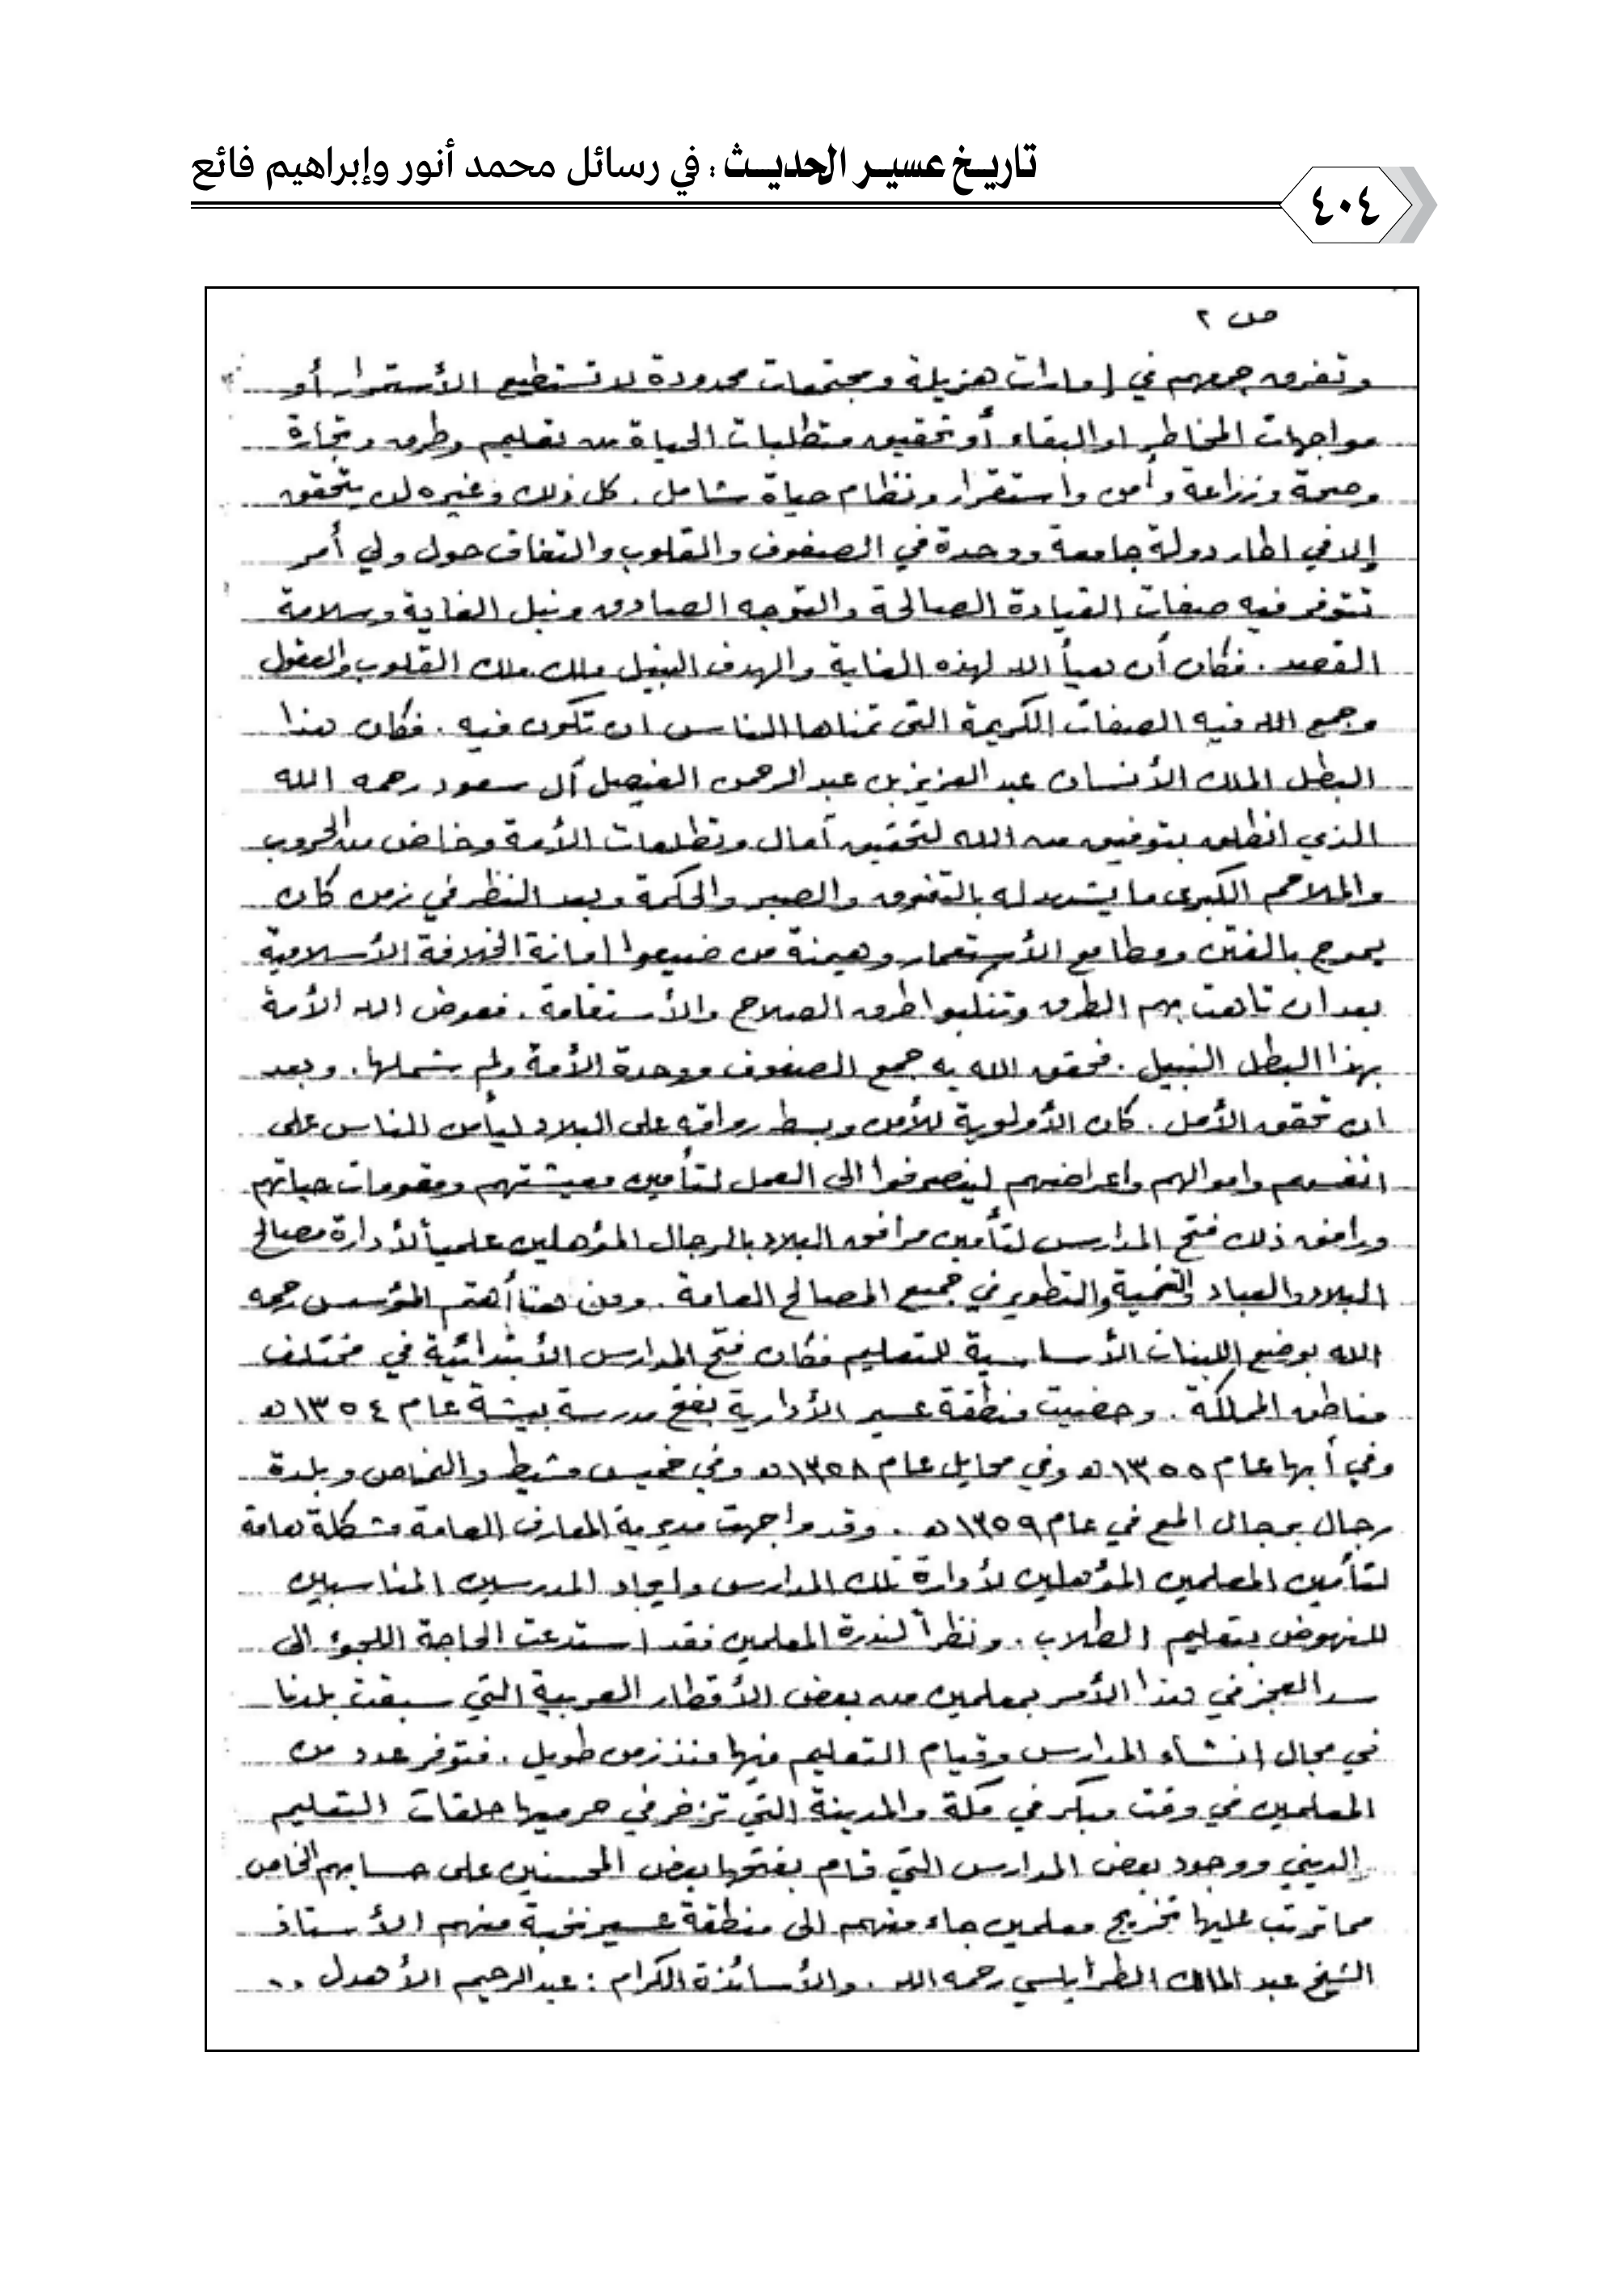 تاريخ عسير الحديث : في رسائل محمد أنور وإبراهيم فائع
٤٠٤
ص ٢
وتفرق جمعهم في إمارات هزيلة ومجتمعات محدودة لا تستطيع الأستمرار أو
مواجهات المخاطر او البقاء أو تحقيق متطلبات الحياة من تعليم وطرق وتجارة
وصحة وزراعة وأمن واستقرار ونظام حياة شامل . كل ذلك وغيره لن يتحقق
إلا في اطار دولة جامعة ووحدة في الصفوف والقلوب والتفاف حول ولي أمر
تتوفر فيه صفات القيادة الصالحة والتوجه الصادق ونبل الغاية وسلامة
القصد . فكان أن هيأ الله لهذه الغاية والهدف النبيل ملك ملك القلوب والعقول
وجمع الله فيه الصفات الكريمة التي تمناها الناس ان تكون فيه . فكان هذا
البطل الملك الأنسان عبد العزيز بن عبد الرحمن الفيصل آل سعود رحمه الله
الذي انطلق بتوفيق من الله لتحقيق آمال وتطلعات الأمة وخاض من الحروب
والملاحم الكبرى ما يشهد له بالتفوق والصبر والحكمة وبعد النظر في زمن كان
يموج بالفتن ومطامع الأستعمار وهيمنة من ضيعوا امانة الخلافة الأسلامية
بعد ان تاهت بهم الطرق وتنكبوا طرق الصلاح والأستقامة . فعوض الله الأمة
بهذا البطل النبيل . فحقق الله به جمع الصفوف ووحدة الأمة ولم شملها . وبعد
ان تحقق الأمل . كان الأولوية للأمن وبسط رواقه على البلاد ليأمن الناس على
انفسهم واموالهم واعراضهم لينصرفوا الى العمل لتأمين معيشتهم ومقومات حياتهم
ورافق ذلك فتح المدارس لتأمين مرافق البلاد بالرجال المؤهلين علمياً لأدارة مصالح
البلاد والعباد والتنمية والتطوير في جميع المصالح العامة . ومن هنا أهتم المؤسس رحمه
الله بوضع اللبنات الأساسية للتعليم فكان فتح المدارس الأبتدائية في مختلف
مناطق المملكة . وحضيت منطقة عسير الأدارية بفتح مدرسة بيشة عام ١٣٥٤هـ
وفي أبها عام ١٣٥٥هـ وفي محايل عام ١٣٥٨هـ وفي خميس مشيط والنماص وبلدة
رجال برجال المع في عام ١٣٥٩هـ . وقد واجهت مديرية المعارف العامة مشكلة هامة
لتأمين المعلمين المؤهلين لأدارة تلك المدارس وايجاد المدرسين المناسبين
للنهوض بتعليم الطلاب . ونظراً لندرة المعلمين فقد استدعت الحاجة اللجوء الى
سد العجز في هذا الأمر بمعلمين من بعض الأقطار العربية التي سبقت بلدنا
في مجال انشاء المدارس وقيام التعليم فيها منذ زمن طويل . فتوفر عدد من
المعلمين في وقت مبكر في مكة والمدينة التي تزخر في حرميها حلقات التعليم
الديني ووجود بعض المدارس التي قام بفتحها بعض المحسنين على حسابهم الخاص
مما ترتب عليها تخريج معلمين جاء منهم الى منطقة عسير نخبة منهم الأستاذ
الشيخ عبد المالك الطرابلسي رحمه الله . والأساتذة الكرام : عبد الرحيم الأهدل ..